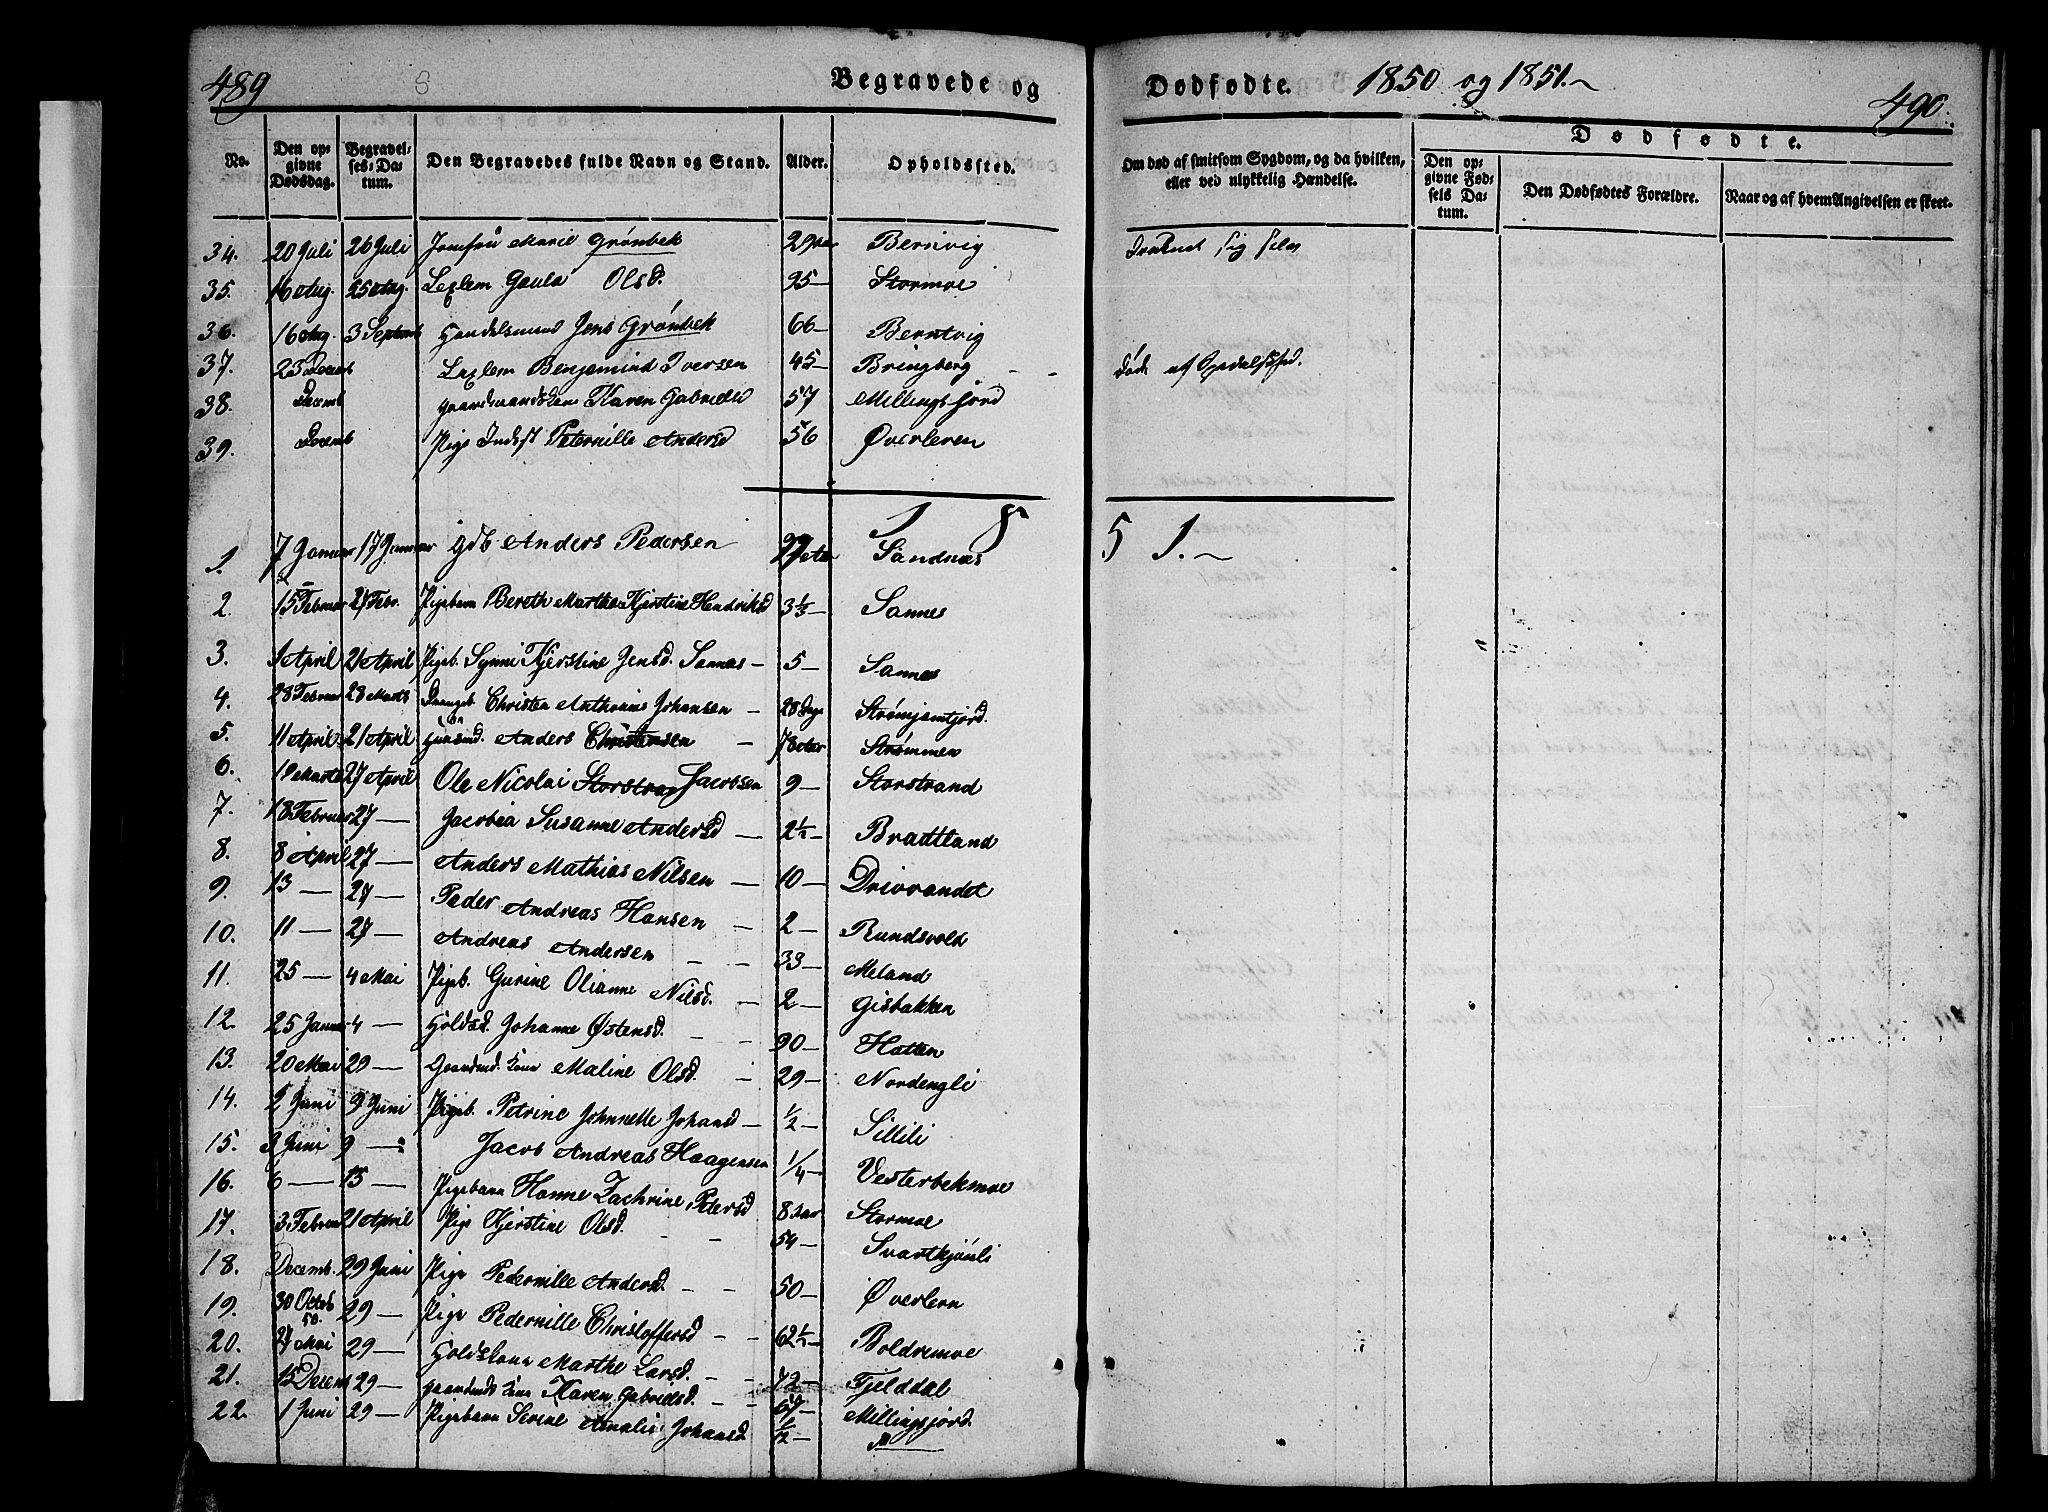 489
Begravede og
Dødfødte. 1850 og 1851.~
490.
No.
Den opgivne Dødsdag.
Begravelses-Datum.
Den Begravedes fulde Navn og Stand.
Alder.
Opholdssted.
Om død af smitsom Sygdom, og da hvilken, eller ved ulykkelig Hændelse.
Dødfødte.
Den opgivne Fødsels Datum.
Den Dødfødtes Forældre.
Naar og af hvem Angivelsen er skeet.
34. 20 Juli 26 Juli Jomfru Marie Grønbek 29 Berntvig sig selv
35. 16 Aug. 25 Aug. Olsd. 95 — Stormoe
36. 16 Aug. 3 Septemb Handelsmand Jens Grønbek 66 — Berntvig
37. 23 Decemb Benjamind Iversen 45 — Bringberg Døde af
38. Decemb Gaardmandskone Karen Gabrielsd 57 Millingsfjord
39. Decemb Pige Indst Peternille Andersd 56 Øverleren
1 8 5 1.~
1. 7 Januar 17 Januar Gdb Anders Pedersen Sandnæs
2. 15 Februar 27 Febr. Pigebarn Bereth Marthe Kjerstine Hendriksd 3½ — Sannes
3. 1 April 21 April Pigeb. Synni Kjerstine Jensd. Sannæs — 5 — Sannæs
4. 28 Februar 28 Marts Drengeb. Christen Anthonius Johansen — 28 Dage Strømjemfjord.
5. 11 April 21 April Huusmd. Anders Christensen — 78 Aar Strømmen
6. 19 Marts 27 April Ole Nicolai Storstran Jacobsen 9 — Storstrand
7. 18 Februar 27 — Jacobia Susanne Andersd — 2½ — Bradtland
8. 8 April 27 — Anders Mathias Nilsen — 10 — Drivrandet
9. 13 — 27 — Peder Andreas Hansen — 2 — Rundsvold
10. 11 — 27 — Andreas Andersen — — 33 — Meland
11. 25 — 4 Mai Pigeb. Gurine Olianne Nilsd. — 2 — Gisbakken
12. 25 Januar 4 — Holdsd. Johanne Østensd. — — 90 — Hatten
13. 20 Mai 29 — Gaardmd. Kone Maline Olsd. — 29 — Nordengli
14. 2 Juni 9 Juni Pigeb. Petrine Johnnelle Johansd — ½ — Sillili
15. 3 Juni 9 — Jacob Andreas Haagensen ¼ — Vesterbekmoe
16. 6 — 15 — Pigebarn Hanne Zachrine Pedersd 8 Aar Stormoe
17. 3 Februar 21 April Pige Kjerstine Olsd. — — 54 — Svartkjønli
18. Decemb. 29 Juni Pige Pedernille Andersd. — — 50 — Øverlern
19. 30 Octob 50. 29 — Pige Pedernille Christoffersd — — 62½ — Boldremoe
20. 27 Mai 29 — Marthe Larsd. — — Fjelddal
21. 15 Decem 29 — Gaardmds Kone Karen Gabrielsd. — — Millingsfjord
22. 1 Juni 29 — Pigebarn Serine Amalie Johansd. ½ —